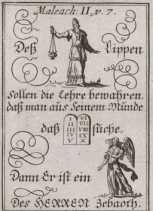 Maleach. II, v. 7.
Deß lippen
Sollen die Lehre bewahren,
daß man aus Seinem Munde
daß suche.
Dann Er ist ein
Des HERREN Zebaoth.